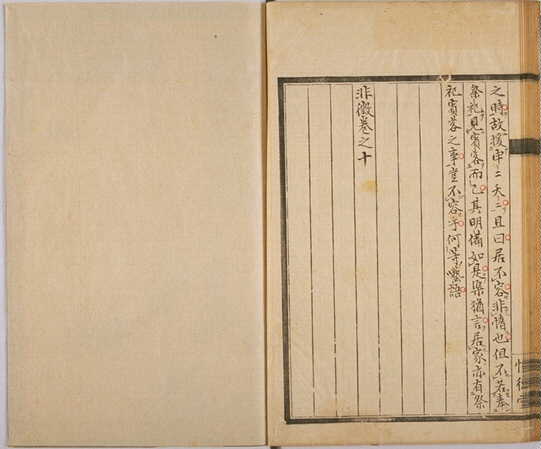 之時故援申〻夭〻且曰居不容非惰也但不若奉
祭祀見賓客而已其明備如是渠猶言居家亦有祭
祀賓客之事豈不容乎何等囈語
非徵卷之十